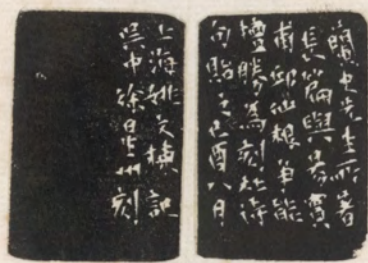 蘭史先生所著
長篇與易實
甫邱仙根爭能
擅勝為刻杜詩
句貽之己酉八月
上海姚文棟記
吳中徐星州刻